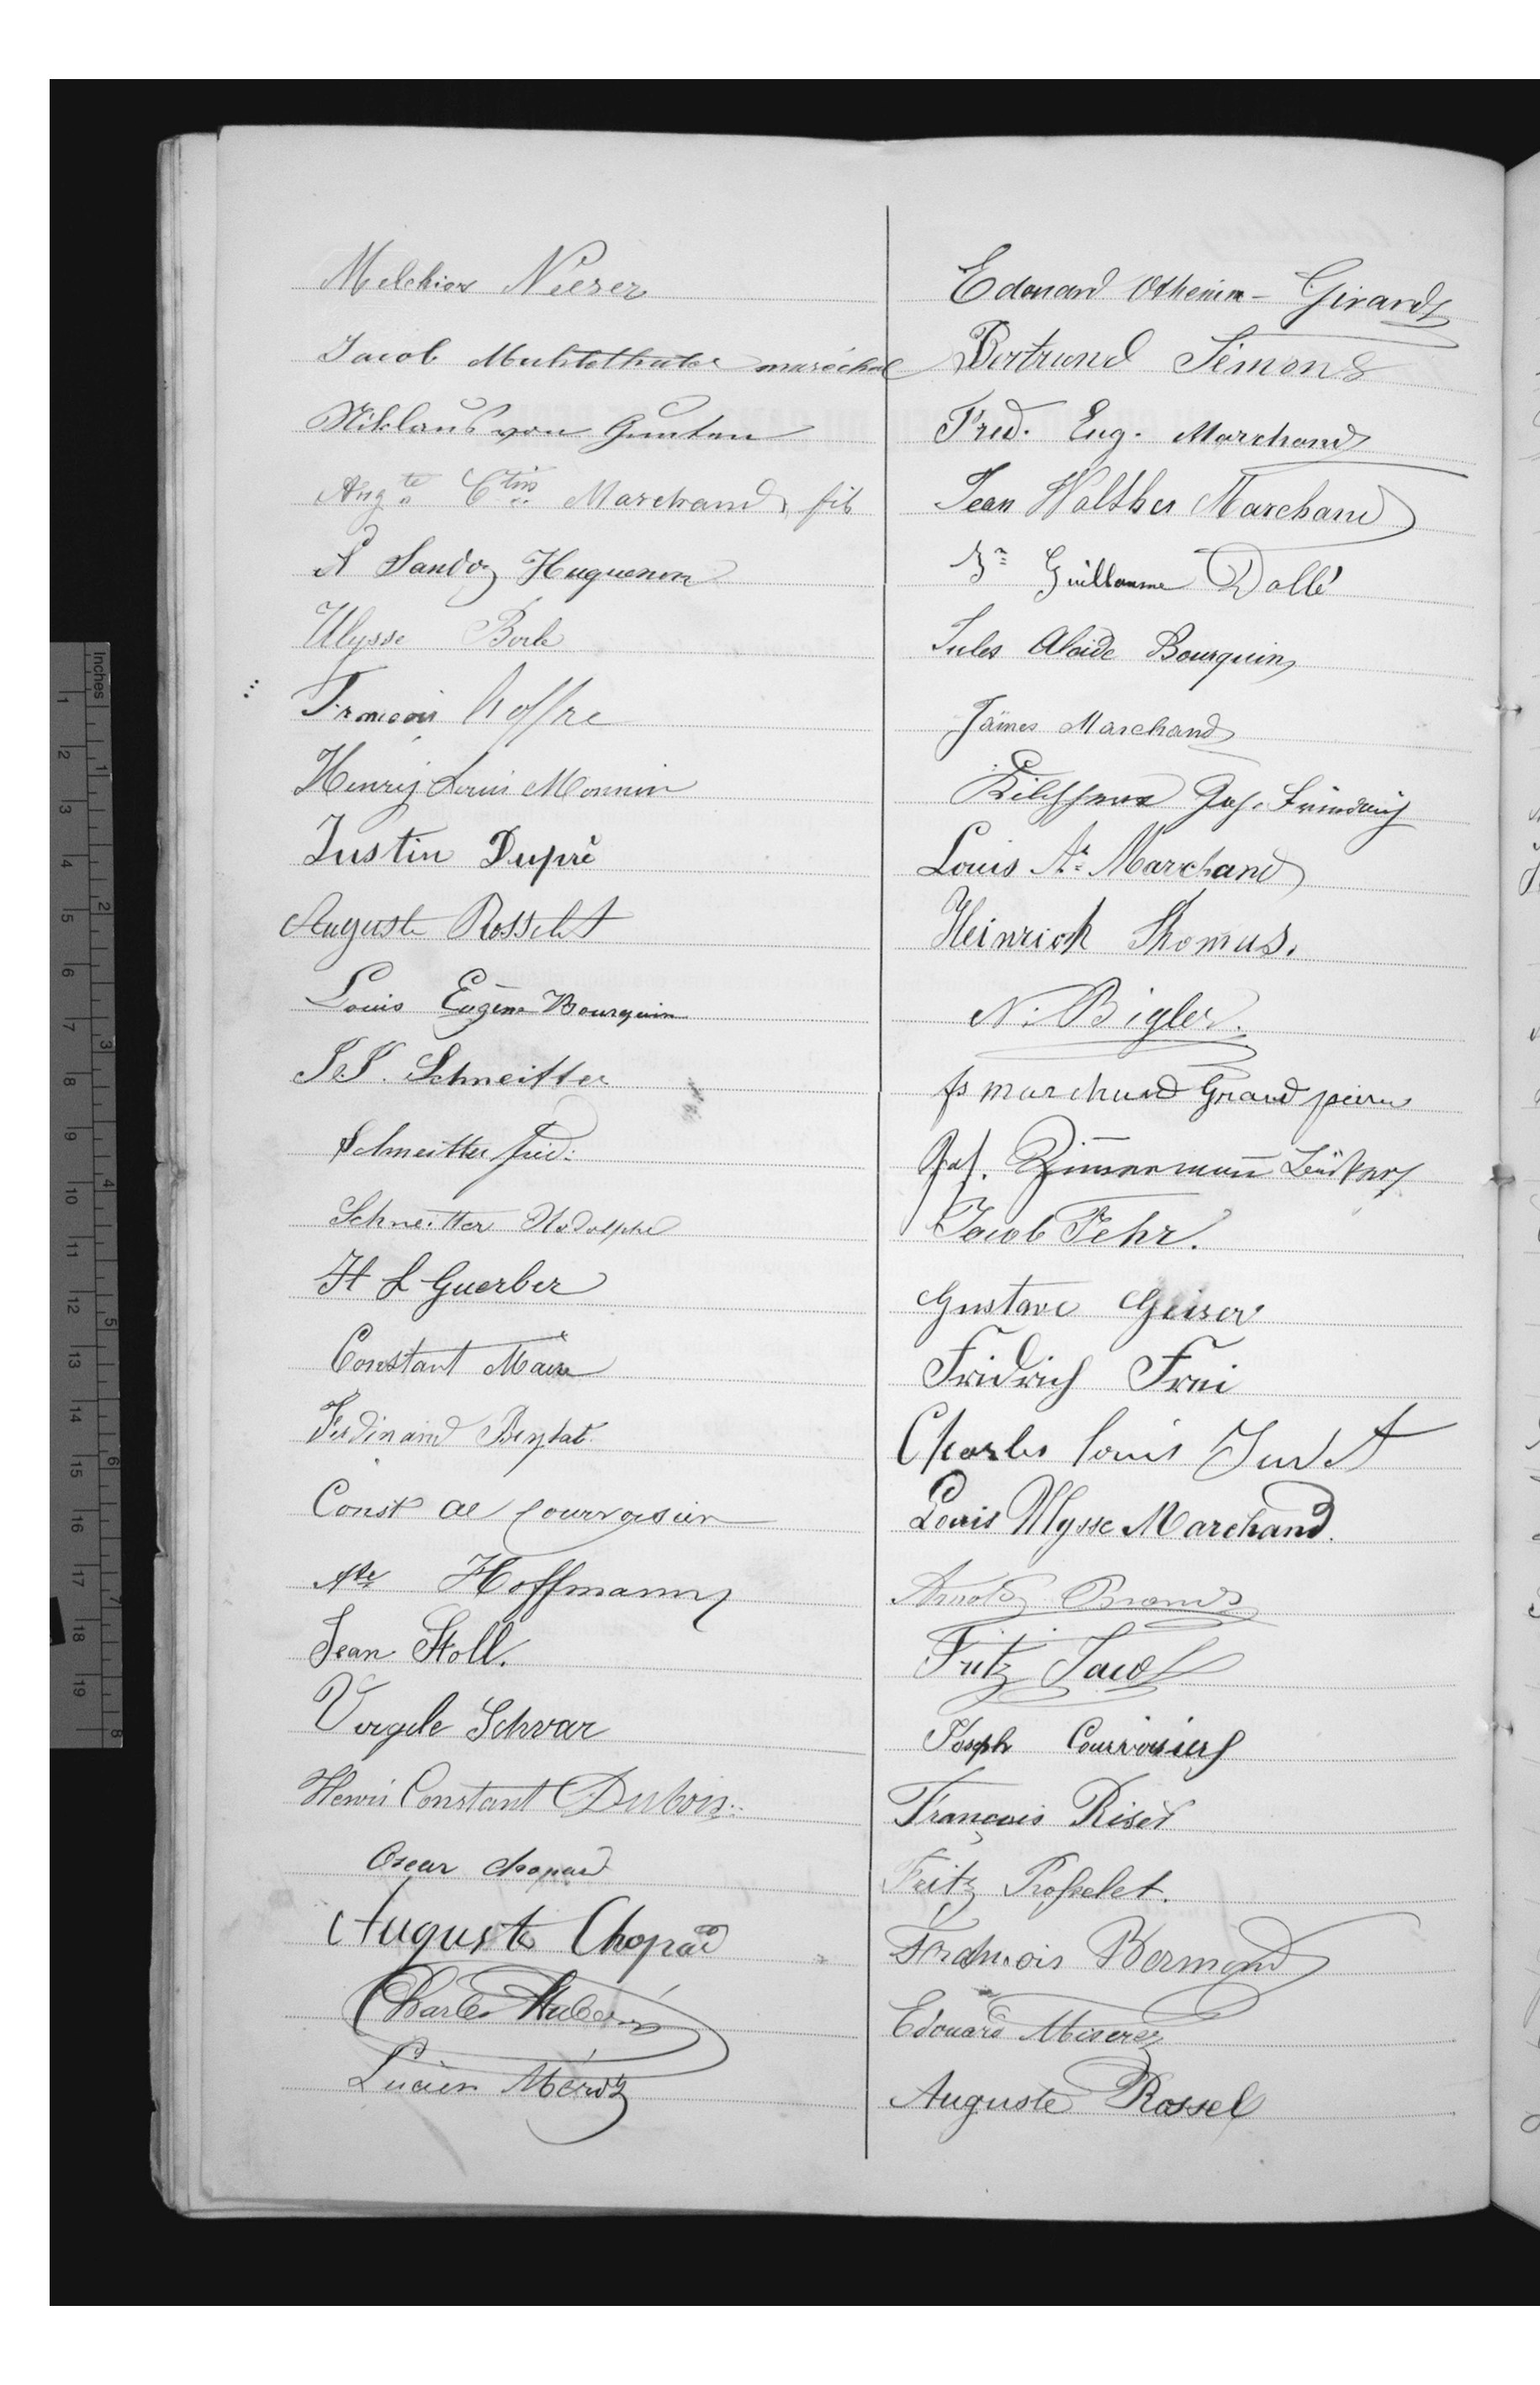 Melchior Nierer
Jacob Muhlethaler maréchal
Niklaus von Gunten
Aug.te C.tin Marchand, fils
A Sandoz Huguenin
Ulysse Borle
François
Henry Louis Monnin
Justin Dupré
Auguste Rosselet
Louis Eugène Bourquin
Schneitter
Schneitter Fréd:
Schneitter Rodolphe
H L Guerber
Constant Maire
Ferdinand
Const Al Courvoisier
Hoffmann
Jean Stoll.
Virgile Schvar
Henri Constant Dubois
Oscar Chopard
Auguste Chopard
Charles
Lucien
Edouard Othenin-Girard
Bertrand Simon
Fred. Eug. Marchand
Jean Walther Marchand
Guillaume Dollé
Jules Alcide Bourquin
James Marchand
Louis A.e Marchand
Heinrich Thomas.
N. Bigler.
fs marchand Grand
Joh. Zimmermann
Jacob Fehr.
Gustave Geiser
Fridrich Frei
Charles Louis
Louis Ulysse Marchand.
Arnold Brand
Fritz Jacot
Joseph Courvoisier
François Riser
Fritz Rosselet.
François Bermond
Edouard Miserez
Auguste Rossel
Inches
1
2
3
4
5
6
7
8
1
2
3
4
5
6
7
8
9
10
11
12
13
14
15
16
17
18
19